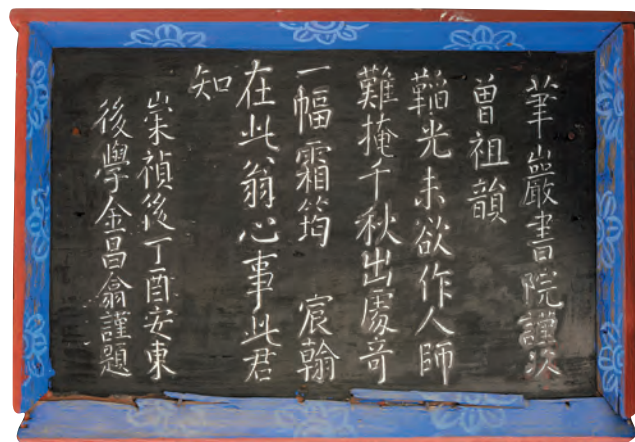 筆巖書院謹次
曽祖韻
鞱光未欲作人師
難掩千秋出處竒
一幅霜筠 宸翰
在此翁心事此君
知
崇禎後丁酉安東
後學金昌翕謹題